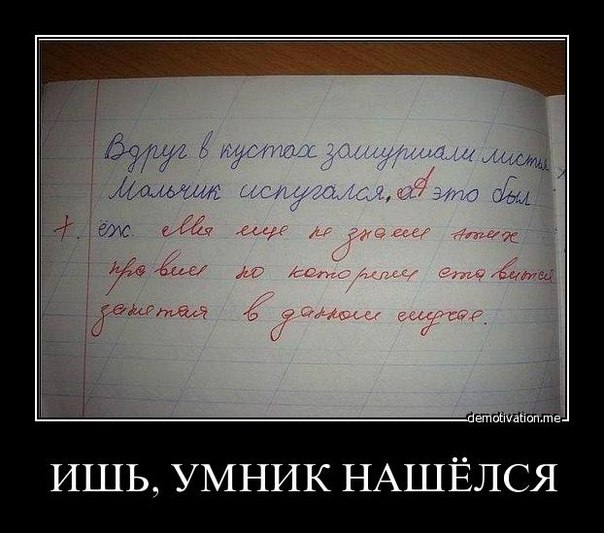 Вдруг в кустах зашуршали листья
Мальчик испугался, аА это был
ёж. Мы ещё не знаем этих
правил по которым ставится
запятая в данном случае.
demotivation.me
ИШЬ, УМНИК НАШЁЛСЯ